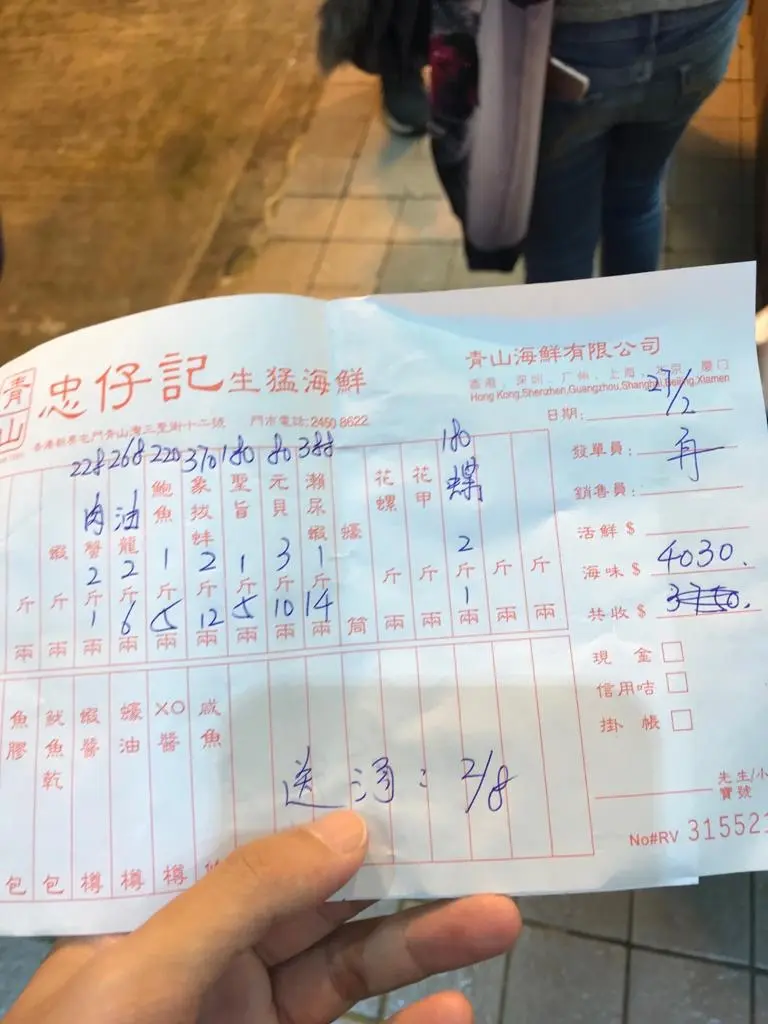 青山
忠仔記生猛海鮮
香港新界屯門青山灣三聖街十二號 門市電話:2450 8622
青山海鮮有限公司
香港、深圳、广州、上海、北京、廈门
Hong Kong,Shenzhen,Guangzhou,Shanghai,Beijing,Xiamen
日期: 27/2
發單員:
銷售員:
活鮮 $
海味 $ 4030.
共收 $
現 金
信用咭
掛 帳
先生/小
寶號
No#RV 315521
斤 兩
蝦 斤 兩
228 肉蟹 2斤 1兩
268 油龍 2斤 6兩
220 鮑魚 1斤 5兩
370 象拔蚌 2斤 12兩
180 聖旨 1斤 5兩
80 元貝 3斤 10兩
388 瀨尿蝦 1斤 14兩
蠔 筒
花螺 斤 兩
花甲 斤 兩
180 螺 2斤 1兩
斤 兩
斤 兩
魚膠 包
魷魚乾 包
蝦醬 樽
蠔油 樽
XO醬 樽
咸魚
送酒: 2/8